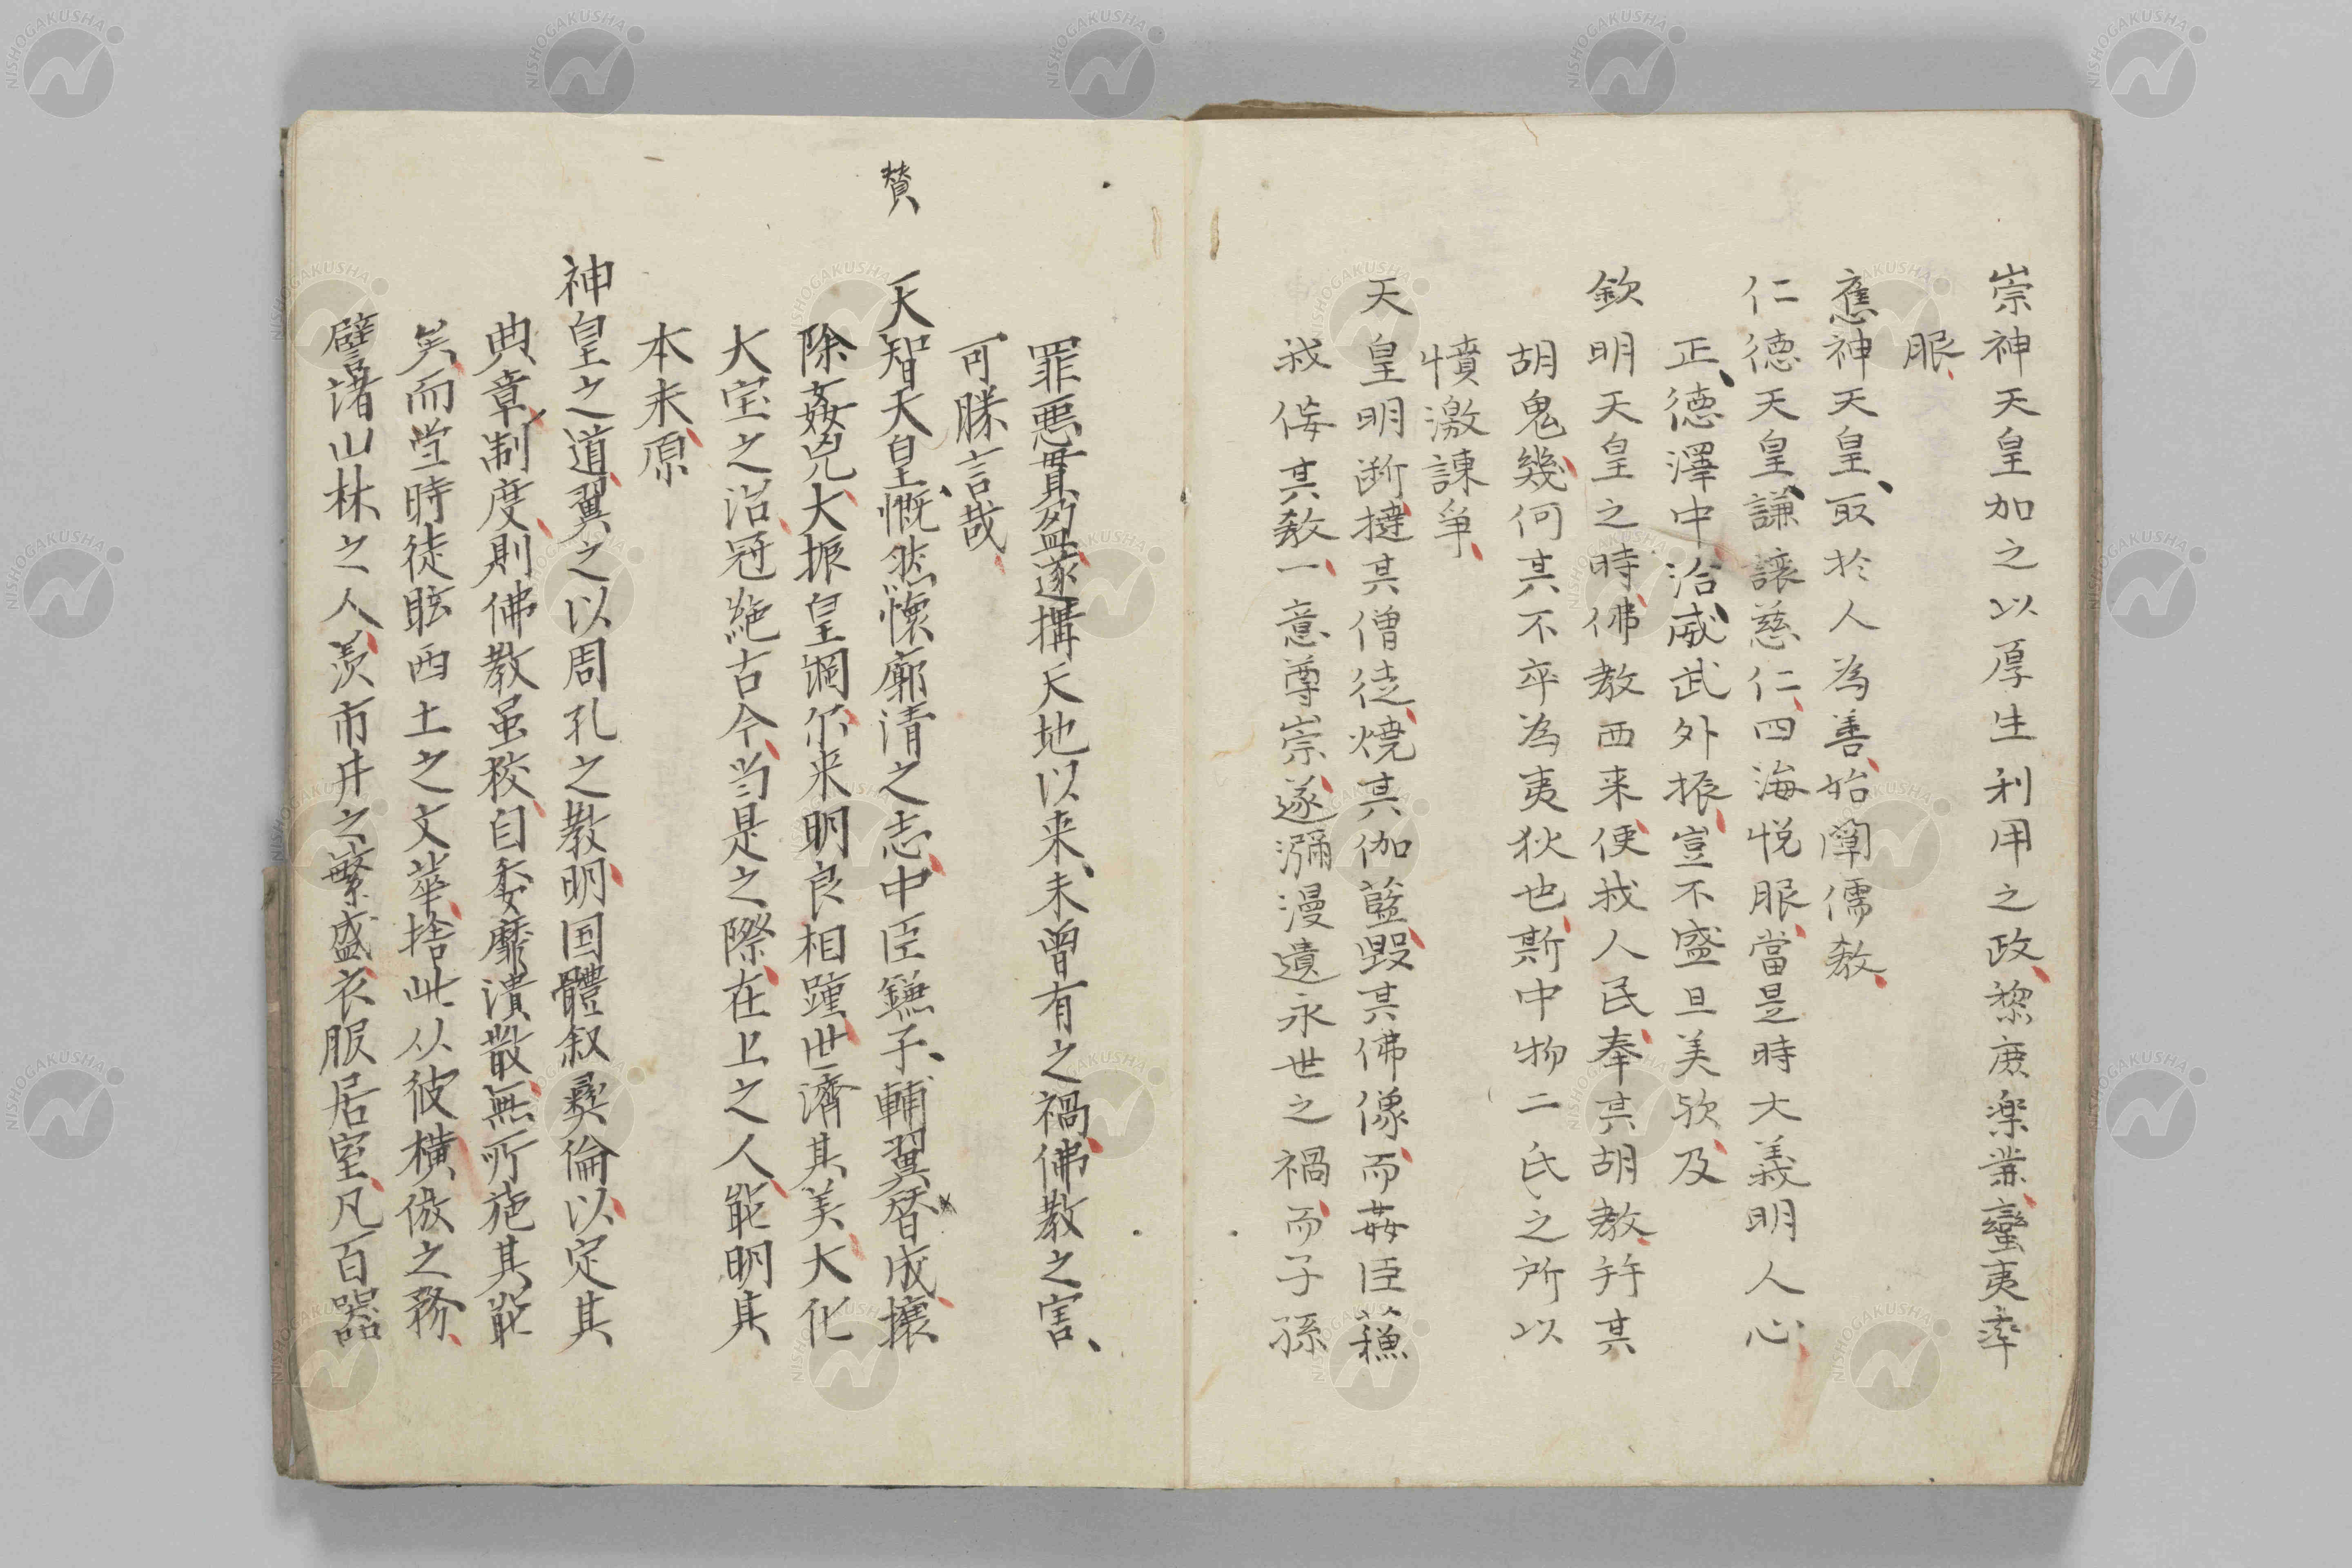 崇神天皇加之以厚生利用之政、黎庶楽業、蠻夷率
服、
應神天皇、取於人為善、始闡儒教、
仁徳天皇、謙讓慈仁、四海悦服、當是時大義明人心
正、徳澤中洽、威武外振、豈不盛且美歟、及
欽明天皇之時、佛教西来、便我人民、奉其胡教、幷其
胡鬼、幾何其不卒為夷狄也、斯中物二氏之所以
憤激諫爭、
天皇明断、撻其僧徒、焼其伽藍、毀其佛像、而姦臣蘓
我侮其教、一意尊崇、遂瀰漫遺永世之禍、而子孫
罪惡貫盈、遂搆天地以来、未曽有之禍、佛教之害、
可勝言哉、
賛
天智天皇、慨然懷廓清之志、中臣鎌子、輔翼簭成、攘
除姦兇、大振皇綱、尓来明良相踵、世濟其美、大化
大宝之治、冠絶古今、当是之際、在上之人、能明其
本末、原
神皇之道、翼之以周孔之教、明国體叙彝倫、以定其
典章制度、則佛教虽狡、自委靡潰散、無所施其能
矣、而当時徒眩西土之文華、捨此以從彼、横倣之務、
譬諸山林之人、羨市井之繁盛、衣服居室、凡百器
NISHOGAKUSHA